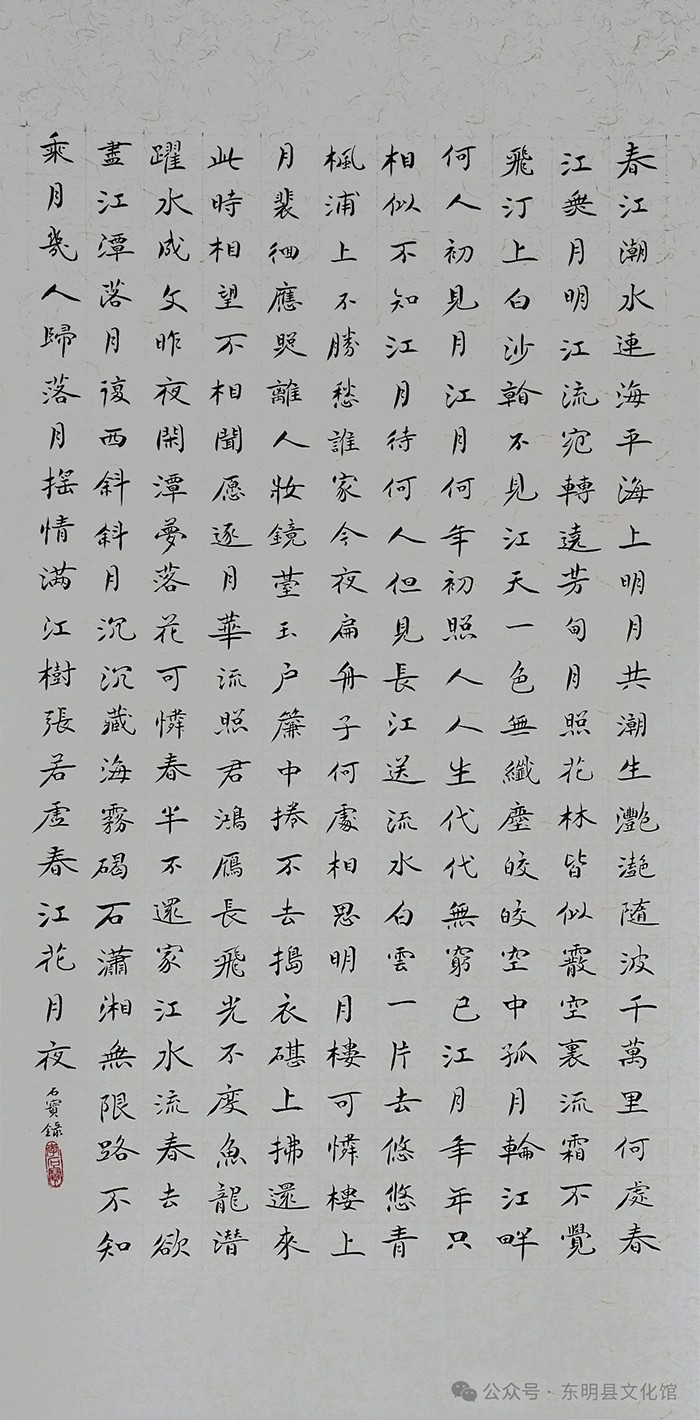 春江潮水連海平海上明月共潮生灩灩隨波千萬里何處春
江無月明江流宛轉遠芳甸月照花林皆似霰空裏流霜不覺
飛汀上白沙看不見江天一色無纖塵皎皎空中孤月輪江畔
何人初見月江月何年初照人人生代代無窮已江月年年只
相似不知江月待何人但見長江送流水白雲一片去悠悠青
楓浦上不勝愁誰家今夜扁舟子何處相思明月樓可憐樓上
月裴徊應照離人妝鏡臺玉户簾中捲不去搗衣碪上拂還來
此時相望不相聞愿逐月華流照君鴻鴈長飛光不度魚龍潛
躍水成文昨夜閑潭夢落花可憐春半不還家江水流春去欲
盡江潭落月復西斜斜月沉沉藏海霧碣石瀟湘無限路不知
乘月幾人歸落月搖情滿江樹張若虛春江花月夜
石寶錄
李石寶
公众号·东明县文化馆